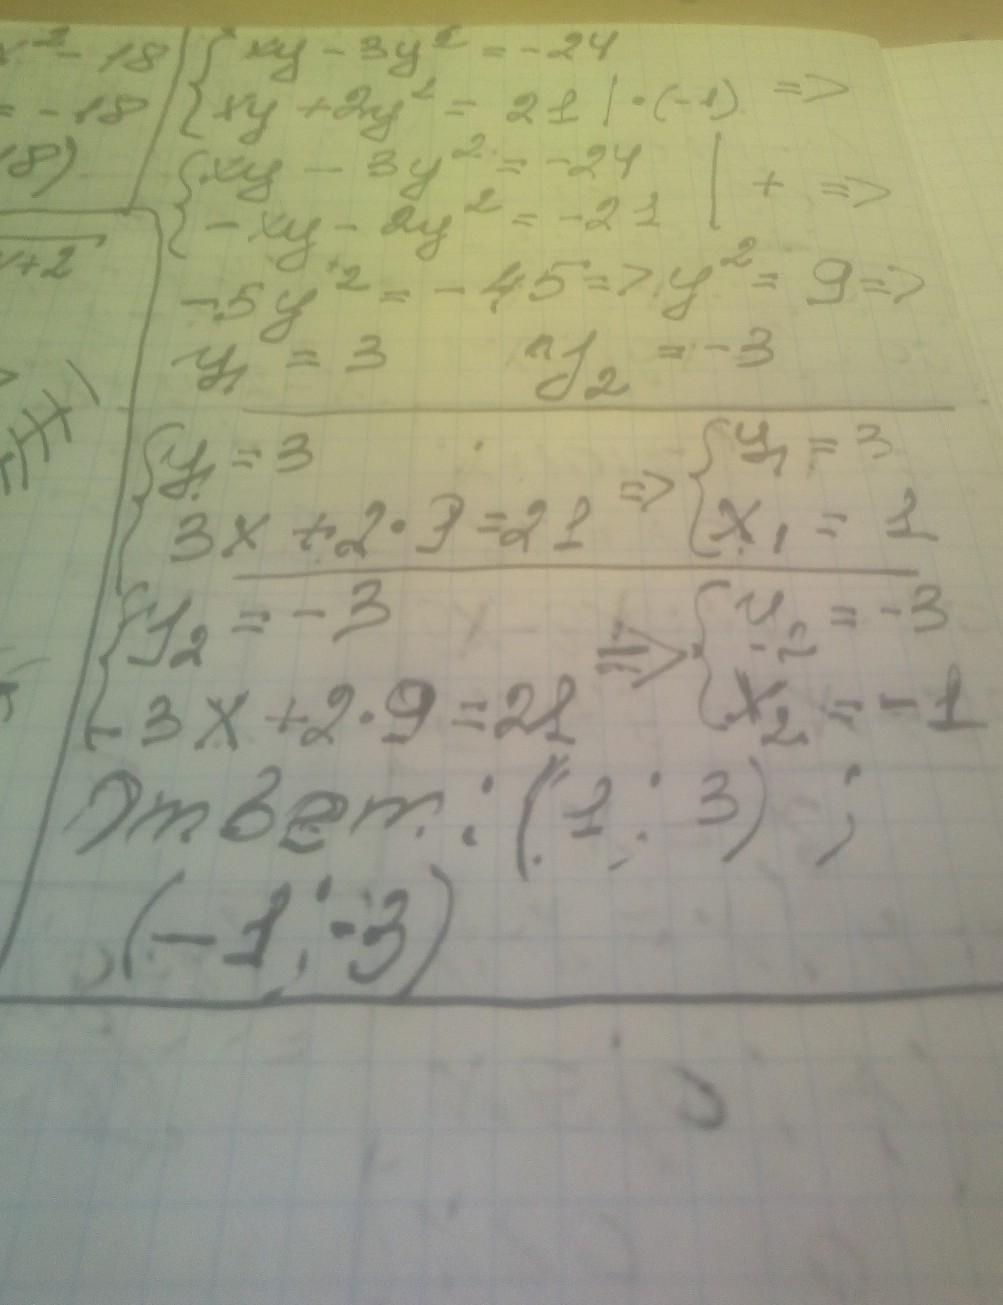 x² - 18
= -18
18)
+2
{ xy - 3y² = -24
{ xy + 2y² = 21 | · (-1) =>
{ xy - 3y² = -24
{ -xy - 2y² = -21 | + =>
-5y² = -45 => y² = 9 =>
y₁ = 3 y₂ = -3
{ y₁ = 3
{ 3x + 2·9 = 21 => { y₁ = 3
{ x₁ = 1
{ y₂ = -3
{ -3x + 2·9 = 21 => { y₂ = -3
{ x₂ = -1
Ответ: (1; 3);
(-1; -3)